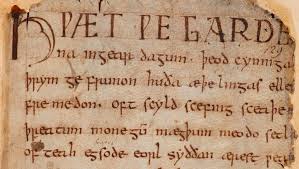 HǷÆT ǷE GARDE
na in gear dagum. þeod cyninga
þrym ge frunon huða æþelingas elle
fremedon. oft scyld scefing sceaþe
þreatum monegū mægþum meodo setl
of teah egsode eorl syððan ærest